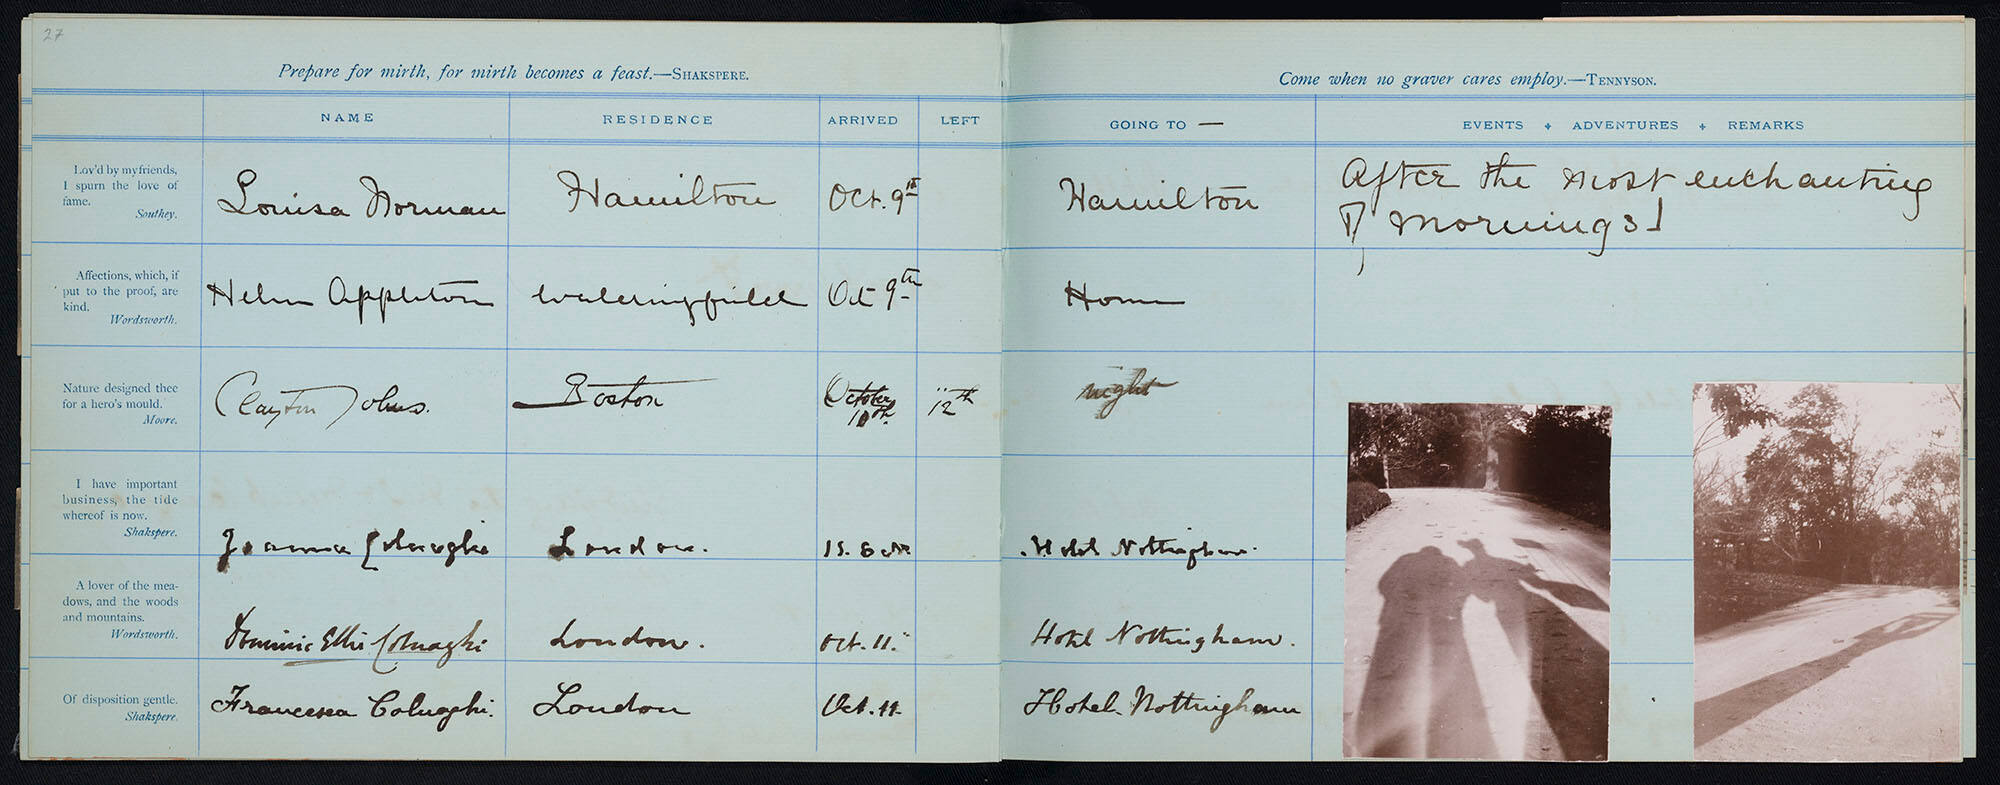 27
Prepare for mirth, for mirth becomes a feast.—SHAKSPERE.
Come when no graver cares employ.—TENNYSON.
NAME RESIDENCE ARRIVED LEFT GOING TO — EVENTS + ADVENTURES + REMARKS
Lov'd by my friends,
I spurn the love of
fame.
Southey.
Louisa Norman Hamilton Oct. 9th Hamilton After the most enchanting
of mornings!
Affections, which, if
put to the proof, are
kind.
Wordsworth.
Helen Appleton Oct 9th Home
Nature designed thee
for a hero's mould.
Moore.
Clayton Johns. Boston October
10th. 12th night
I have important
business, the tide
whereof is now.
Shakspere.
Colnaghi London. Hotel Nottingham.
A lover of the mea-
dows, and the woods
and mountains.
Wordsworth.
Dominic Ellis Colnaghi London. Oct. 11. Hotel Nottingham.
Of disposition gentle.
Shakspere.
Francesca Colnaghi. London Oct. 11. Hotel Nottingham